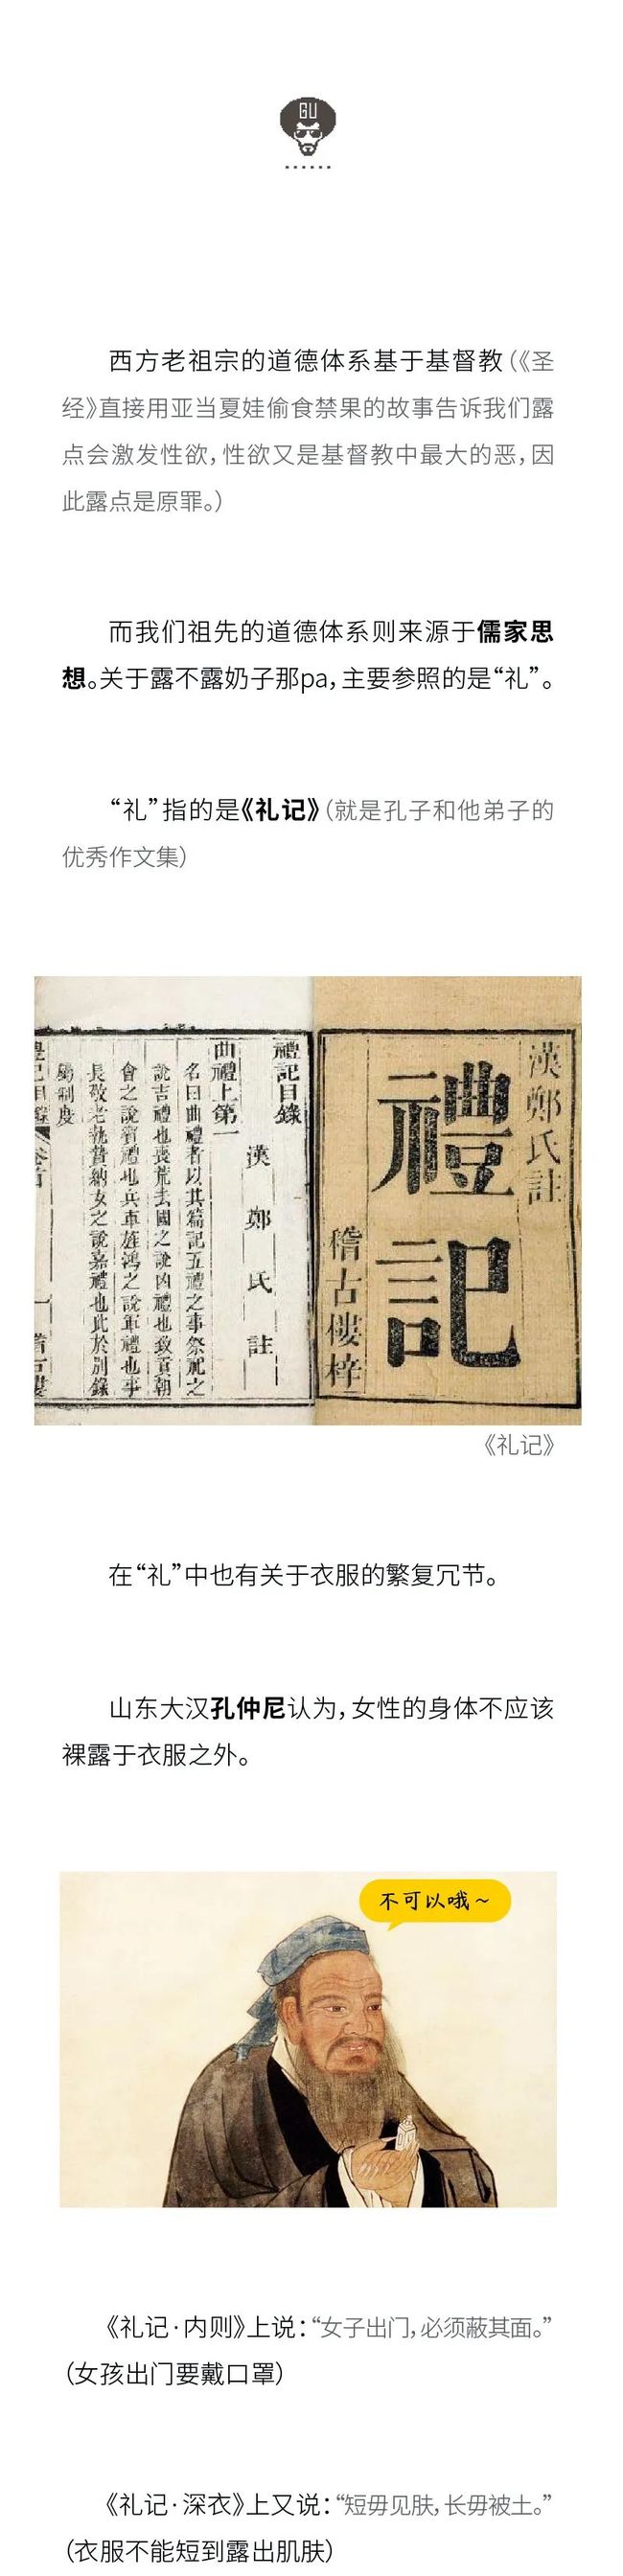 GU
西方老祖宗的道德体系基于基督教(《圣
经》直接用亚当夏娃偷食禁果的故事告诉我们露
点会激发性欲,性欲又是基督教中最大的恶,因
此露点是原罪。)
而我们祖先的道德体系则来源于儒家思
想。关于露不露奶子那pa,主要参照的是“礼”。
“礼”指的是《礼记》(就是孔子和他弟子的
优秀作文集)
漢鄭氏註
禮記
稽古樓梓
禮記目錄
漢鄭氏註
曲禮上第一
名曰曲禮者以其篇記五禮之事祭祀之
說吉禮也喪荒去國之說凶禮也致貢朝
會之說賓禮也兵車旌鴻之說軍禮也事
長敬老執贄納女之說嘉禮也此於別錄
屬制度
《礼记》
在“礼”中也有关于衣服的繁复冗节。
山东大汉孔仲尼认为,女性的身体不应该
裸露于衣服之外。
不可以哦~
《礼记·内则》上说:“女子出门,必须蔽其面。”
(女孩出门要戴口罩)
《礼记·深衣》上又说:“短毋见肤,长毋被土。”
(衣服不能短到露出肌肤)